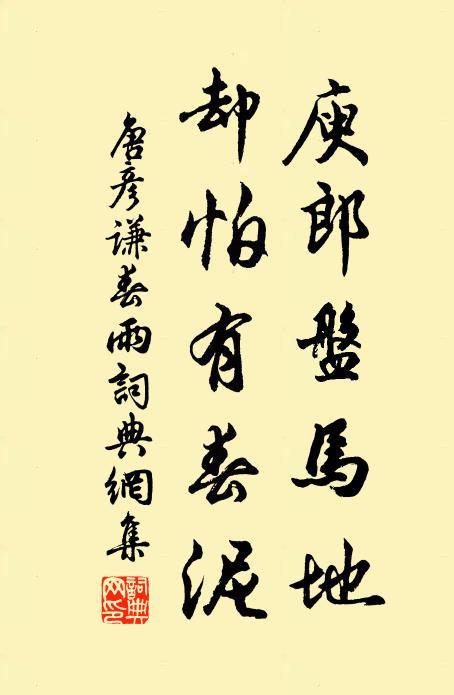 庾郎盤馬地
却怕有春泥
唐彥謙春雨詞典網集
詞典網印